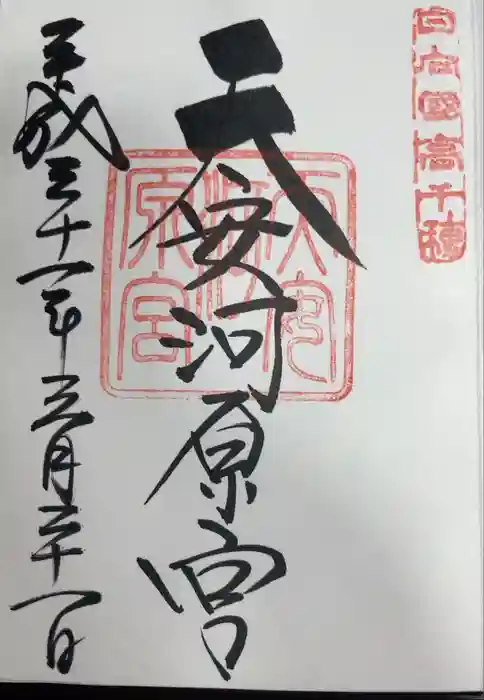 日向国高千穂
天安河原宮
平成三十一年三月三十一日
天安河原宮